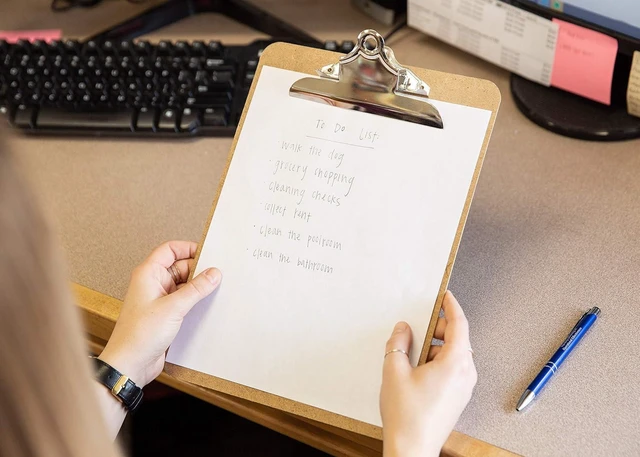 To Do List
walk the dog
· grocery shopping
cleaning checks
· collect rent
· clean the poolroom
· clean the bathroom